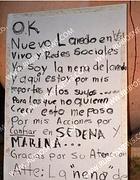 OK
Nuevo Lando en
Vivo y Redes Sociales
Yo Soy la nena de
y aqui estoy por mis
reportes y los suyos....
Para los que no quieran
Creer esto me paso
Por mis Acciones por
Confiar en SEDENA y
MARINA...
Gracias por Su Atención
Atte: La nena de